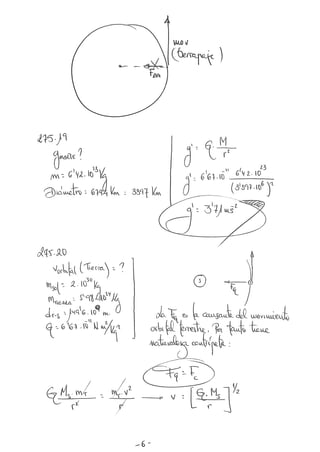 mov
(terrapaje)
275.19
gmarte?
m = 6'42.10²³ Kg
Diámetro: 6794 Km : 3397 Km
g = G. M/r²
g = 6'67.10⁻¹¹ 6'42.10²³/(3'397.10⁶)²
g = 3'71 ms⁻²
275.20
Vorbital (Tierra) = ?
Msol = 2.10³⁰ Kg
G = 6'67.10⁻¹¹ N m²/Kg²
Fg
La Fg es la causante del movimiento
orbital terrestre. Por tanto tiene
naturaleza centrípeta:
Fg = Fc
G Ms mT/r² = mT v²/r → v = [G. Ms/r]^1/2
- 6 -